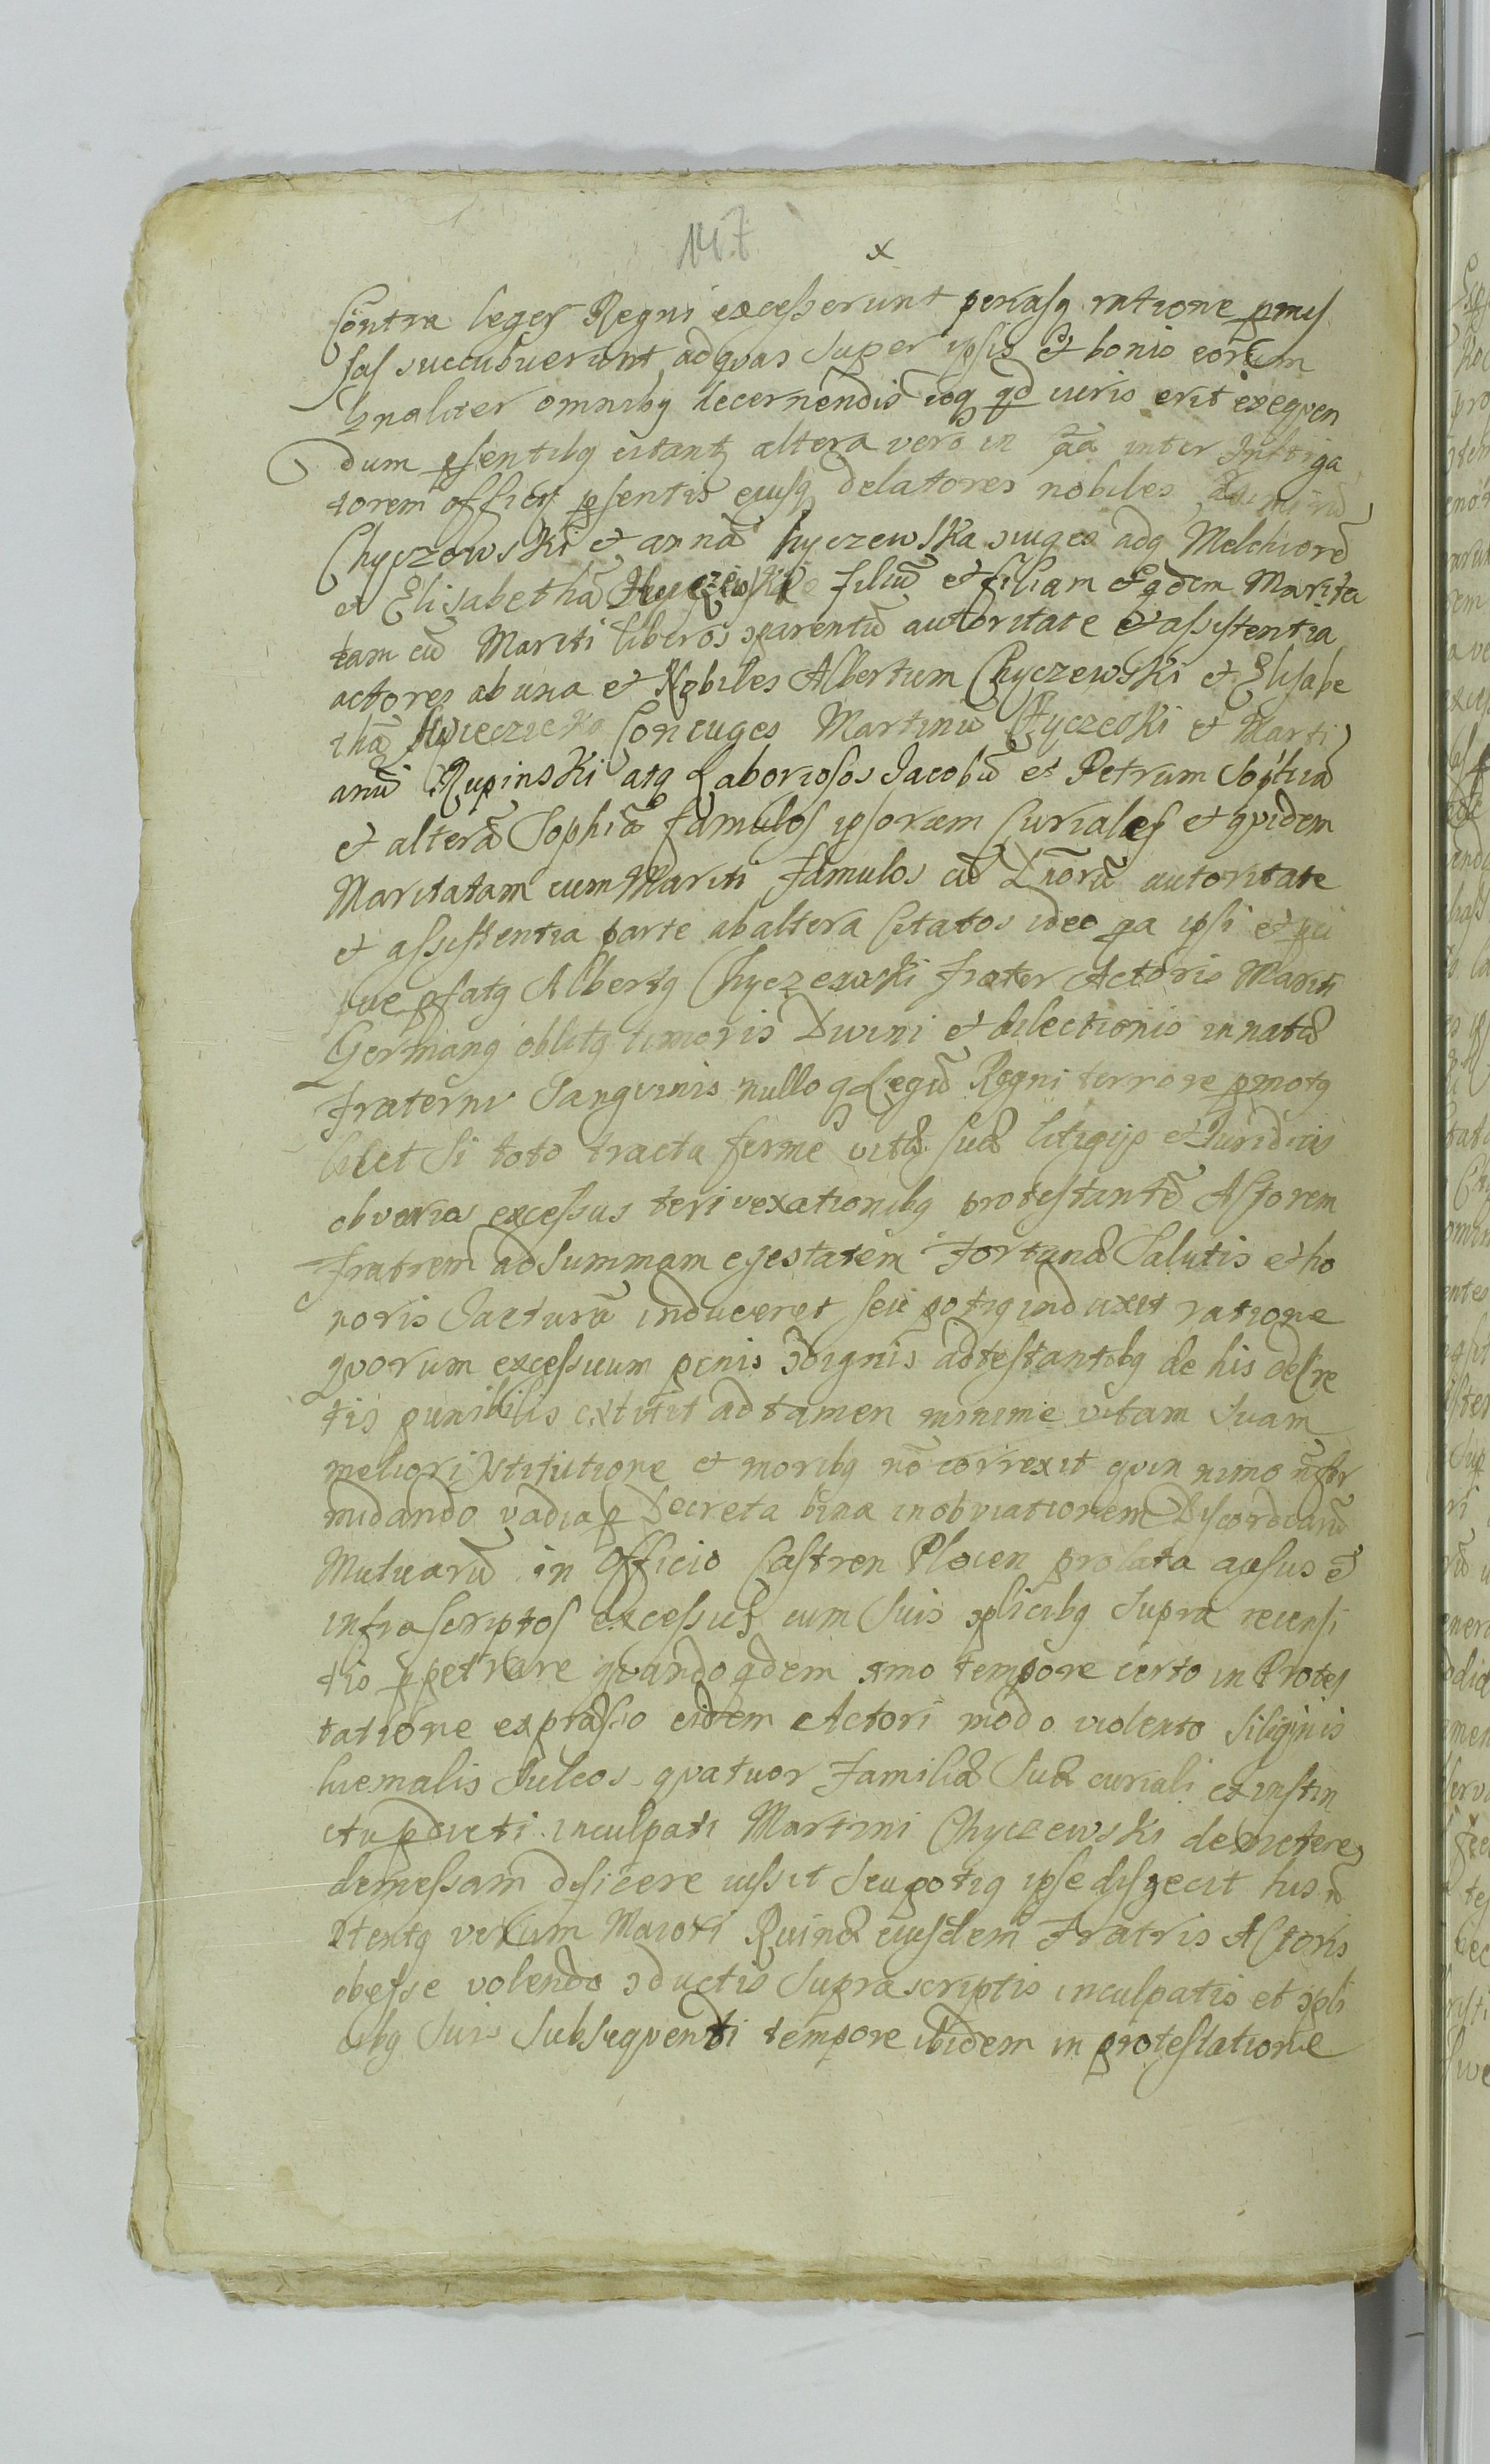 147
x
Contra leges Regni excesserunt penasq ratione pmis
sas succubuerunt ad quas super ipsis et bonis eorum
qualiter omnibq decernendis idq qd iuris erit exequen
dum psentibq citantq altera vero in ca inter Instiga
torem officy psentis eiusq delatores nobiles
Chyczowski et anna hyczewska ɔiuges adq Melchiorē
et Elisabethā filiū et filiam et qdem Marita
tam cū Mariti liberos ɔparentū autoritate et assistentia
actores ab una et Nobiles Albertum Chyczewski et Elisabe
thā Coniuges Martinū Chyczeski et Marti
anū Rupinski atq Laboriosos Jacobū et Petrum
et alterā Sophiā famulos ipsorum Curiales et quidem
Maritatam cum Mariti famulos cū Dnorū autoritate
et assistentia parte ab altera Citatos ideo qa ipsi et qui
ue pfatq Albertq Chyczewski frater Actoris Mariti
Germanq oblitq timoris Divini et dilectionis innatæ
fraterni Sanguinis nulloq Legū Regni terrore pmotq
licet Si toto tractu ferme vitæ suæ litigijs et Juridicis
obvenia excessus teri vexationibq protestantē Actorem
fratrem ad summam egestatem Fortunæ Salutis et ho
noris Jacturā induceret seu potiq induxit ratione
quorum excessuum penis ɔdignis adtestantibq de his decre
tis punibilis extitit ad tamen minime vitam suam
meliori ɔstitutione et moribq nō correxit quin nimo nō for
midando vadia p Decreta bina in obviationem Discordiarū
Mutuarū in Officio Castren Plocen prolata ausus ē
infrascriptos excessus cum suis ɔplicibq supra recensi
tis ppetrare quando qdem 1mo tempore certo in Protes
tatione expresso eidem Actori modo violento Siliginis
hiemalis Sulcos quatuor Familiæ Suæ curiali ex instin
ctu pdicti inculpati Martini Chyczewski demetere
demessam dijicere iussit Seu potiq ipse disiecit his nō
ɔtentq verum Maiori Ruinæ eiusdem Fratris Actoris
obesse volendo ɔductis Suprascriptis inculpatis et ɔpli
cibq Suis Subsequenti tempore ibidem in protestatione